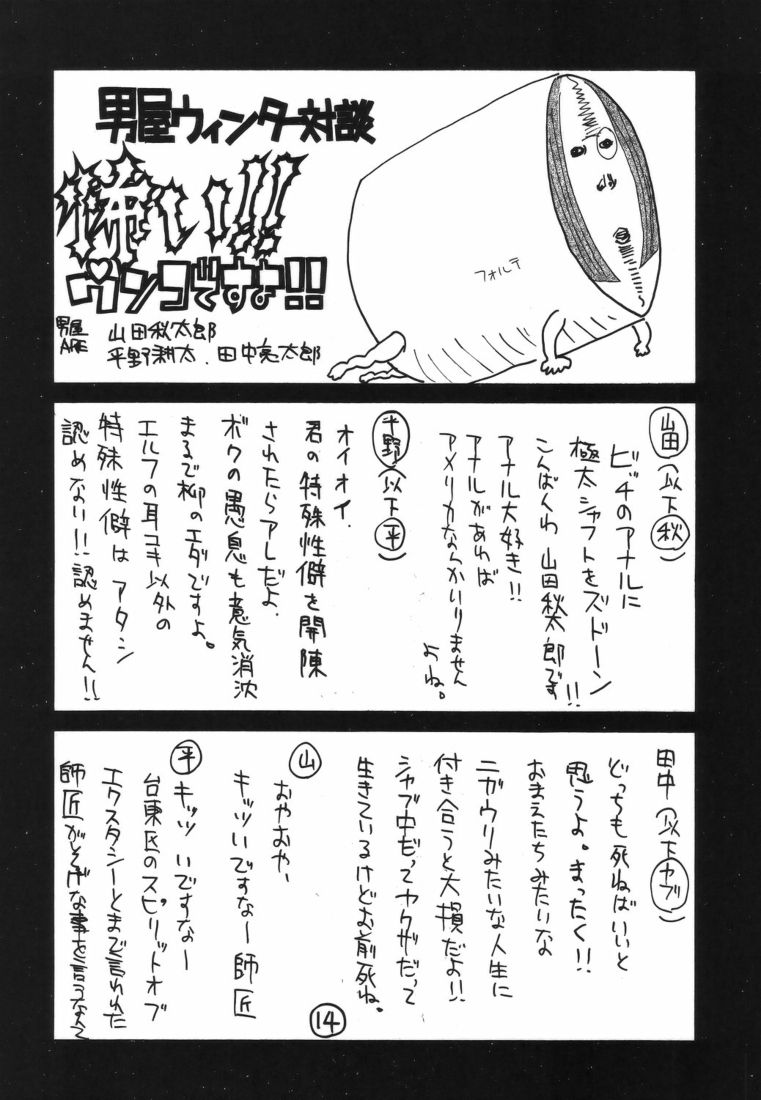 男屋ウィンター対談
怖い!!
ウンコですよ!!
男屋ARE
山田秋太郎
平野耕太、田中亮太郎
フォルテ
山田(以下秋)
ビッチのアナルに
極太シャフトをズドーン!!
こんばんわ 山田秋太郎です
アナル大好き!!
アナルがあれば
アメリカなんかいりません
よね。
平野(以下平)
オイオイ、
君の特殊性癖を開陳
されたらアレだよ、
ボクの愚息も意気消沈
まるで柳のエダですよ。
エルフの耳コキ以外の
特殊性癖は アタシ
認めない!!認めません!!
田中(以下ヤブ)
どっちも死ねばいいと
思うよ。まったく!!
おまえたちみたいな
ニガウリみたいな人生に
付き合うと大損だよ!!
シャブ中だってヤクザだって
生きているけどお前死ね。
山
おやおや、
キッツいですなー師匠
平
キッツいですなー
台東区のスピリットオブ
エクスタシーとまで言われた
師匠がそげな事を言うなんて
14